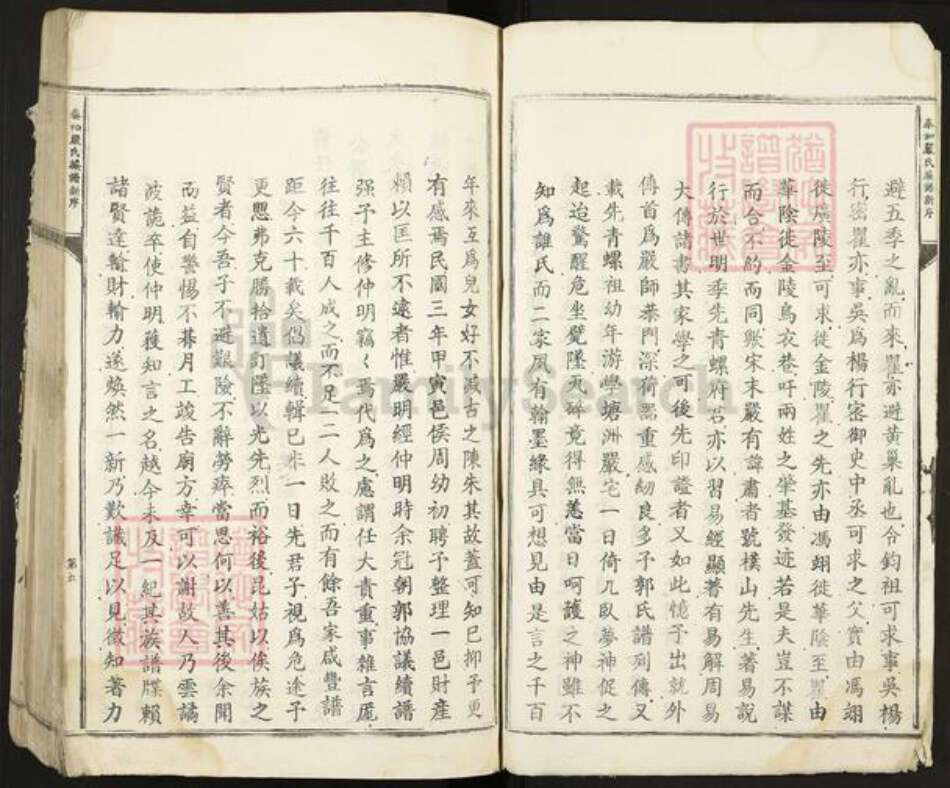 泰和嚴氏族譜新序
避五季之亂而來瞿亦避黃巢亂也令鈞祖可求事吳楊
行密瞿亦事吳爲楊行密御史中丞可求之父實由馮翊
徙廣陵至可求徙金陵瞿之先亦由馮翊徙華陰至瞿由
華陰徙金陵烏衣巷吁兩姓之肇基發迹若是夫豈不謀
而合不約而同歟宋末嚴有諱肅者號樸山先生著易說
行於世明季先青螺府君亦以習易經顯著有易解周易
大傳諸書其家學之可後先印證者又如此憶予出就外
傳首爲嚴師葉門深荷器重感紉良多予郭氏譜列傳又
載先青螺祖幼年游學塘洲嚴宅一日倚几臥夢神促之
起迨驚醒危坐甓墜几碎竟得無恙當日呵護之神雖不
知爲誰氏而二家夙有翰墨緣具可想見由是言之千百
年來互爲兒女好不減古之陳朱其故蓋可知已抑予更
有感焉民國三年甲寅邑侯周幼初聘予整理一邑財産
賴以匡所不逮者惟嚴明經仲明時余冠朝郭協議續譜
强予主修仲明竊竊焉代爲之慮謂任大責重事雜言厖
往往千百人成之而不足一二人敗之而有餘吾家咸豐譜
距今六十載矣倡議續輯已非一日先君子視爲危途予
更愳弗克勝拾遺訂墜以光先烈而裕後昆姑以俟族之
賢者今吾子不避艱險不辭勞瘁當思何以善其後余聞
而益自警惕不朞月工竣告廟方幸可以謝故人乃雲譎
波詭卒使仲明獲知言之名越今未及一紀其族譜牒賴
諸賢達輸財輸力遂煥然一新乃歎識足以見微知著力
泰和嚴氏族譜新序
第五
FamilySearch